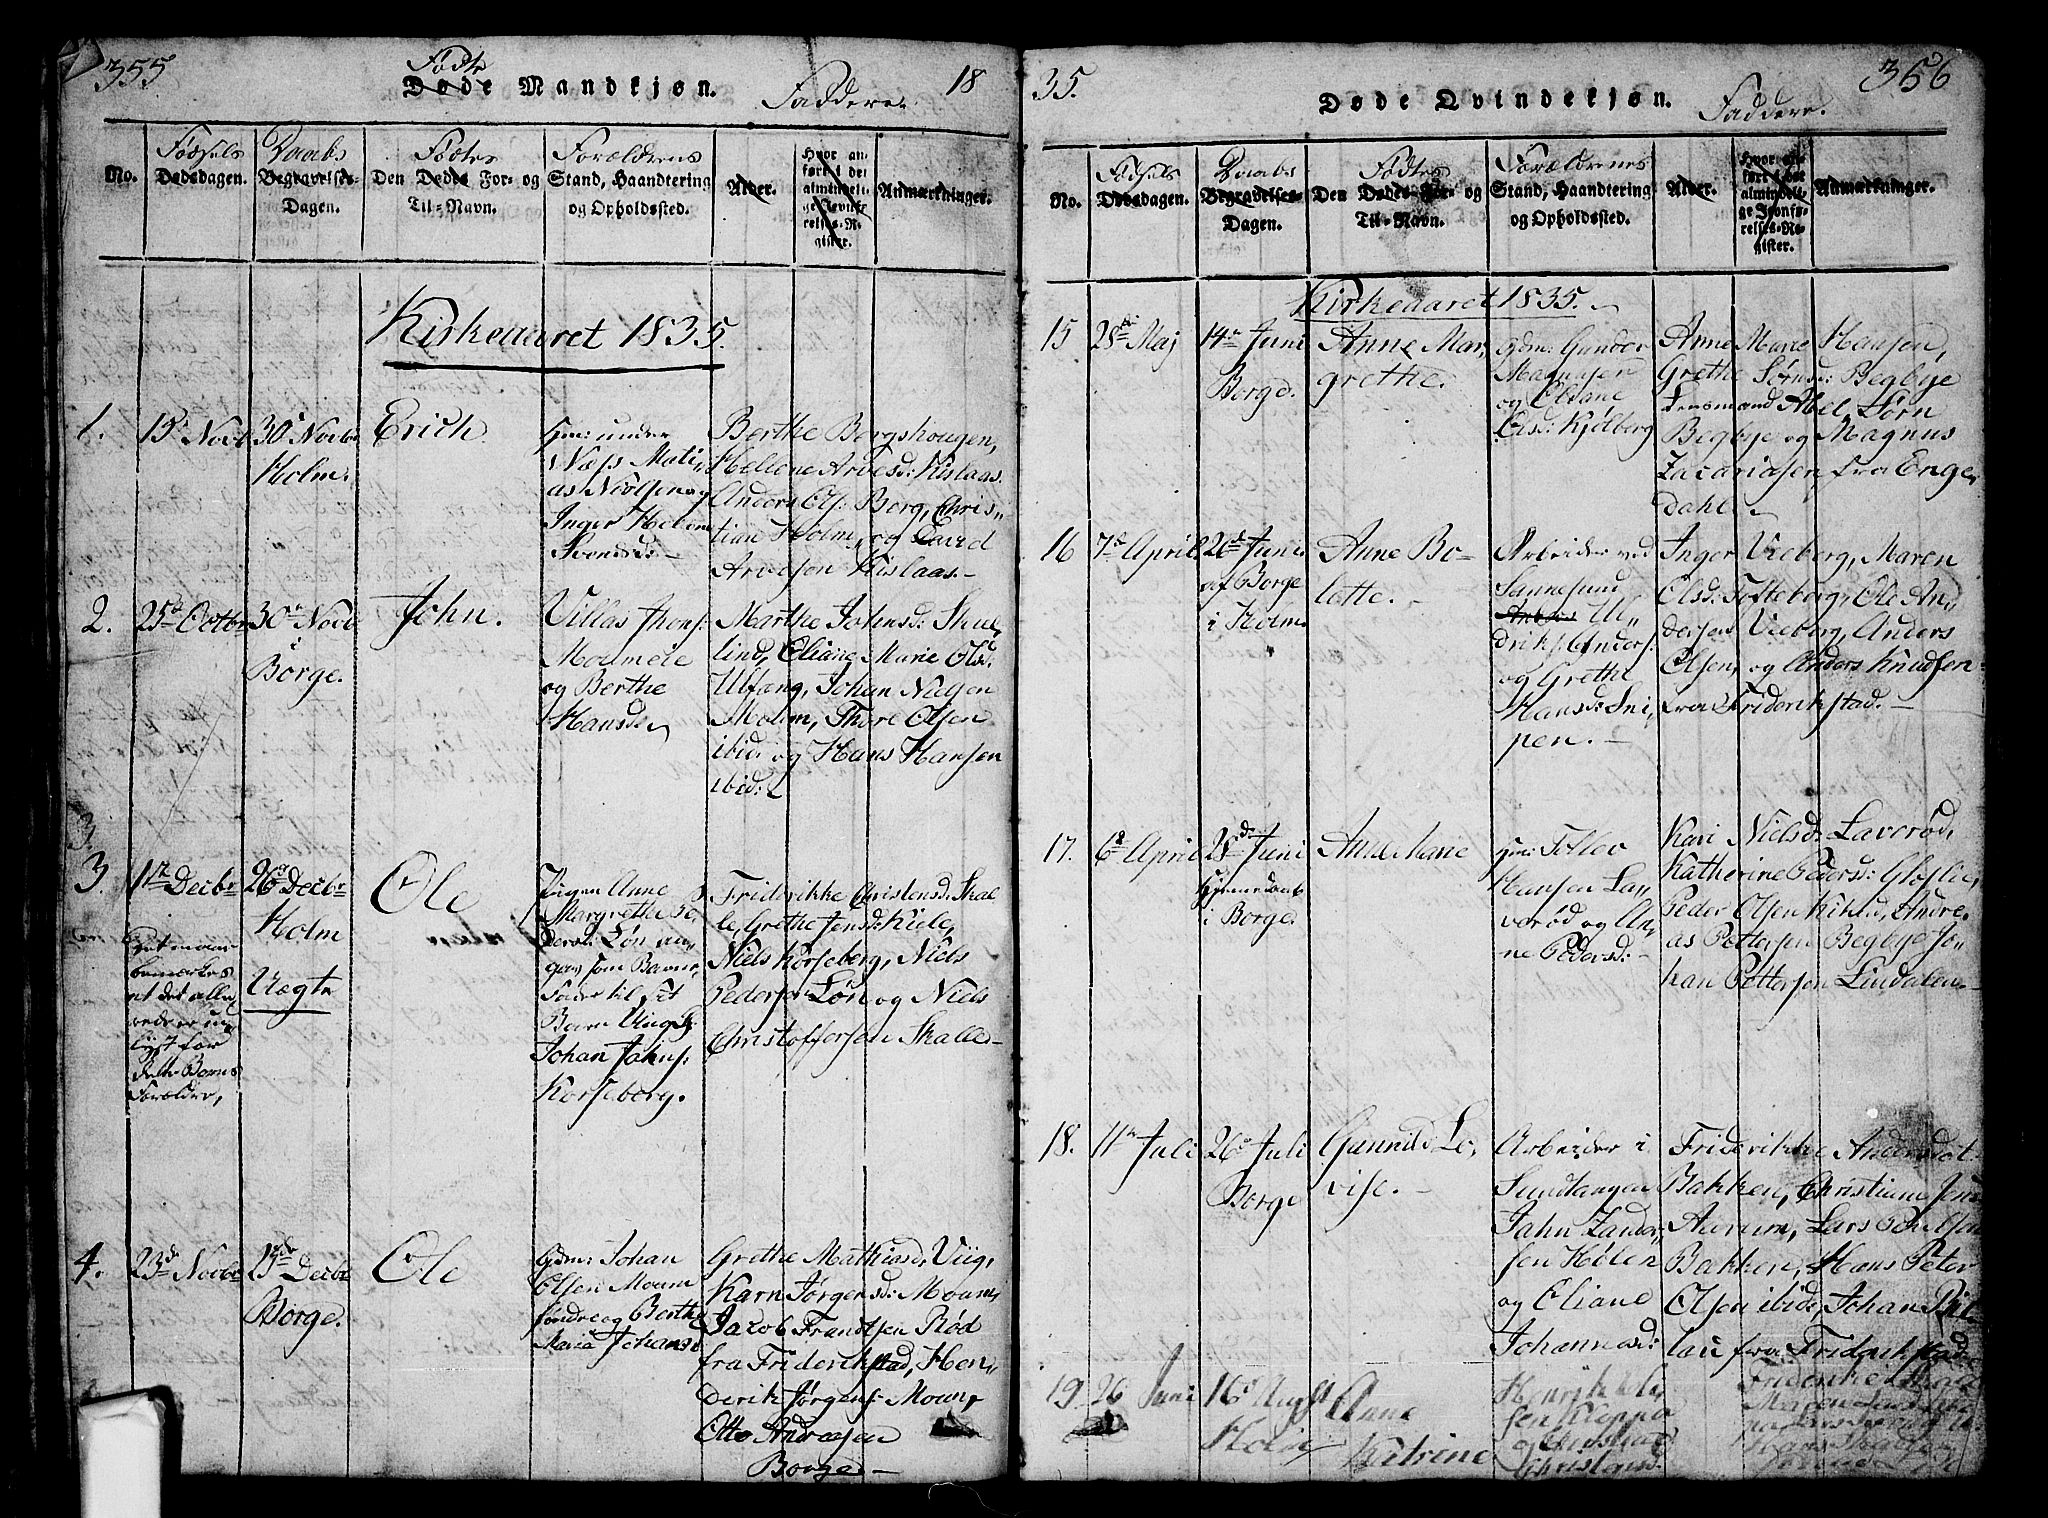 355
18
Fødte
Døde Mandkjøn.
Faddere.
No.
Fødsels
Dødsdagen.
Daabs
Begravelses-
Dagen.
Fødtes
Den Dødes For- og
Til-Navn.
Forældrens
Stand, Haandtering
og Opholdssted.
Alder.
Hvor an-
ført i det
almindeli-
ge Jevnfø-
relses-Re-
gister.
Anmærkninger.
Kirkeaaret 1835.
1.
15d Novbr
30te Novbr
Holm.
Erich
Berthe Borgshougen,
Heliene Arvesd: Kislaas
Anders Ols: Borg, Chris„
tian Holm, og David
Arvesen Kislaas.
Inger Helene
Svensd:
2.
25de Octbr
30te Novb
i
Borge.
John.
Villas Jhons:
og Berthe
Hansd.
Marthe Johnsd: Skul„
lind, Eliane Marie Olsd:
Ulfæng, Johan Nagen
Molm, Thore Olsen
ibid. og Hans Hansen
ibid:
3.
3.
11te Decbr
26d Decbr
Holm
Uægte
Det maae
bemærkes
at det alle„
rede er un„
lyst for
dette Barns
Forældre,
Ole
Pigen Anne
Margrethe Pe„
dersd: Løn an„
gav som Barne„
fader til sit
Barn Ungk:
Johan Jahns:
Korseberg.
Friderikke Christensd: Skal
le, Grethe Jensd: Kiele,
Niels Korseberg, Niels
Pedersen Løn og Niels
Christoffersen Skalle
4.
23d Novbr
25de Decbr
Borge.
Ole
Gdm: Johan
Olsen Moum
søndre og Berthe
Maria Johansd
Grethe Mathiasd, Viig,
Karn Jørgensd: Moum,
Jacob Frantsen Rød
fra Friderikstad, Hen„
derik Jørgens: Moum,
Otto Andreasen
Borge
35.
356
Døde Qvindekjøn.
Faddere.
No.
Fødsels
Dødsdagen.
Daabs
Begravelses-
Dagen.
Fødtes
Den Dødes For- og
Til-Navn.
Forældrenes
Stand, Haandtering
og Opholdssted.
Alder.
Hvor an-
ført i det
almindeli-
ge Jevnfø-
relses-Re-
gister.
Anmærkninger.
Kirkeaaret 1835.
15
28de Maj
14de Juni
Borge.
Anne Mar„
grethe.
Gdm: Gunder
Magnusen
og Eliane
Elsd: Kjølberg
Anne Marie Hansen,
Grethe Sørnsd: Begbye
Lensmand Abel, Sørn
Begbye og Magnus
Zacariasen fra Enge„
dahl.
16
7de April
26de Juni
af Borge
i Holm.
Anne Bo-
lette.
Arbeider ved
Sannesund
Anders Ul„
drik Anders:
og Grethe
Hansd: Sni
pen.
Inger Vieberg, Maren
Olsd: Tofteberg, Ole An„
dersen Vieberg, Anders
Olsen, og Anders Knudsen
fra Friderikstad.
17.
6d April
28de Juni
Hjemmedaabt
i Borge.
Anne Marie
Gm: Tollev
Hansen La„
verød og An„
ne Pedersd:
Kari Nielsd: Laverød,
Katherine Pedersd: Gloslie,
Peder Olsen Kiklud, Andre„
as Pettersen Begbye Jo„
han Pettersen Lindalen
18.
11te Juli
26d Juli
Borge
Gunnild Lo„
vise.
Arbeider i
Sundtangen
Jahn Zander„
sen Holen
og Eliane
Johannesd:
Friderikke Andersdt
Bakken, Christiane Jensd
Aurum, Lars Poulsen
Bakken, Hans Peter
Olsen ibid, Johan
lau fra Friderikstad
19.
26 Juni
16d Augst
Holm
Anne
Katrine
Henrik Ole
sen Kloppa
og
Christensd.
Friderikke
Maren